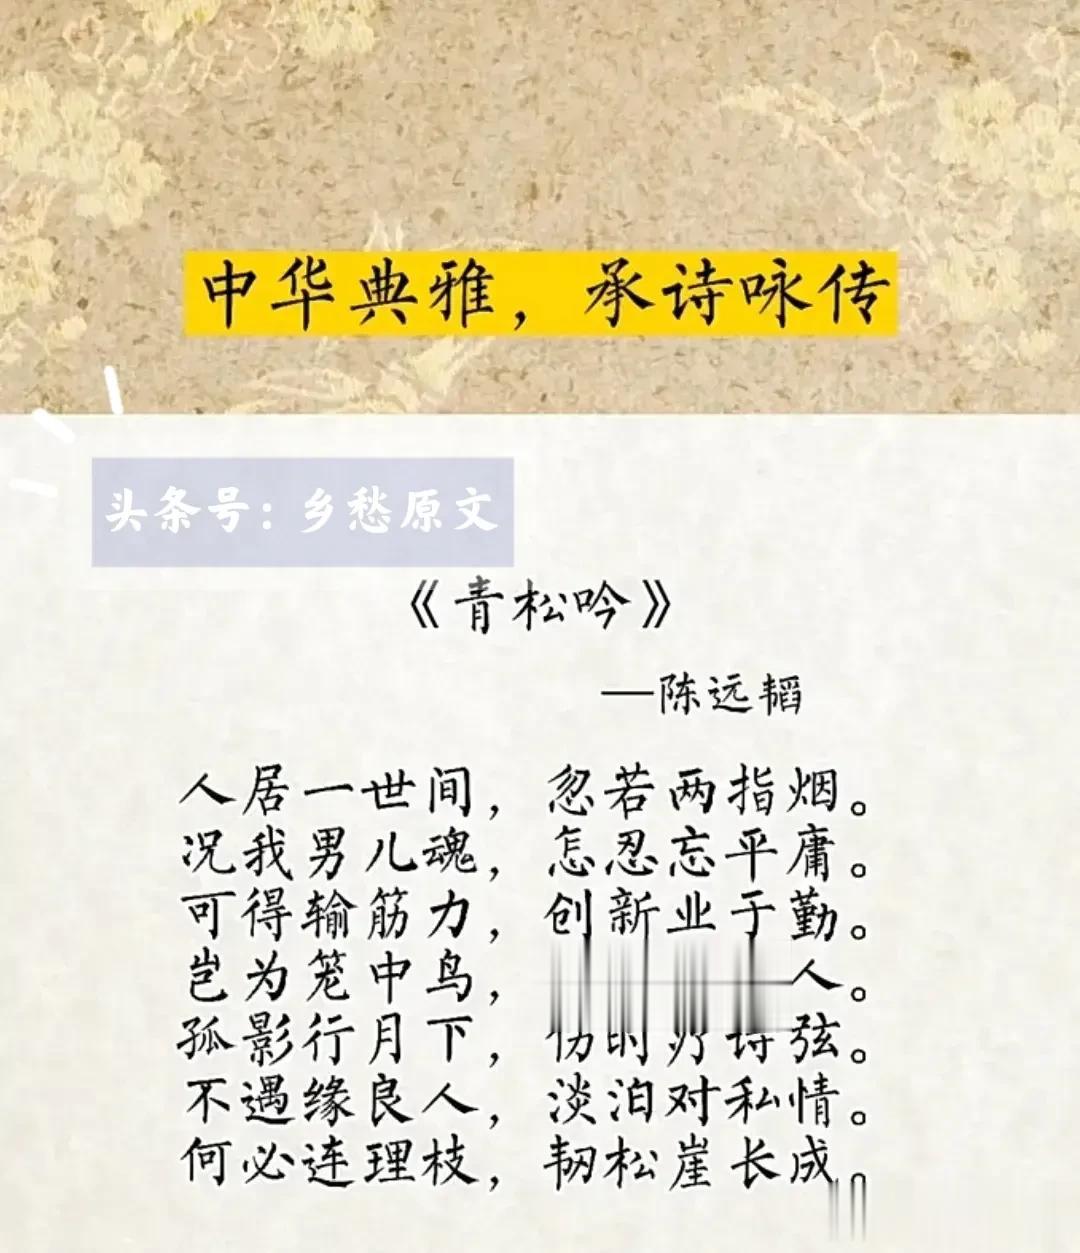 中华典雅，承诗咏传
头条号：乡愁原文
《青松吟》
—陈远韬
人居一世间，忽若两指烟。
况我男儿魂，怎忍忘平庸。
可得输筋力，创新业于勤。
岂为笼中鸟，人。
孤影行月下，伤时疗诗弦。
不遇缘良人，淡泊对私情。
何必连理枝，韧松崖长成。